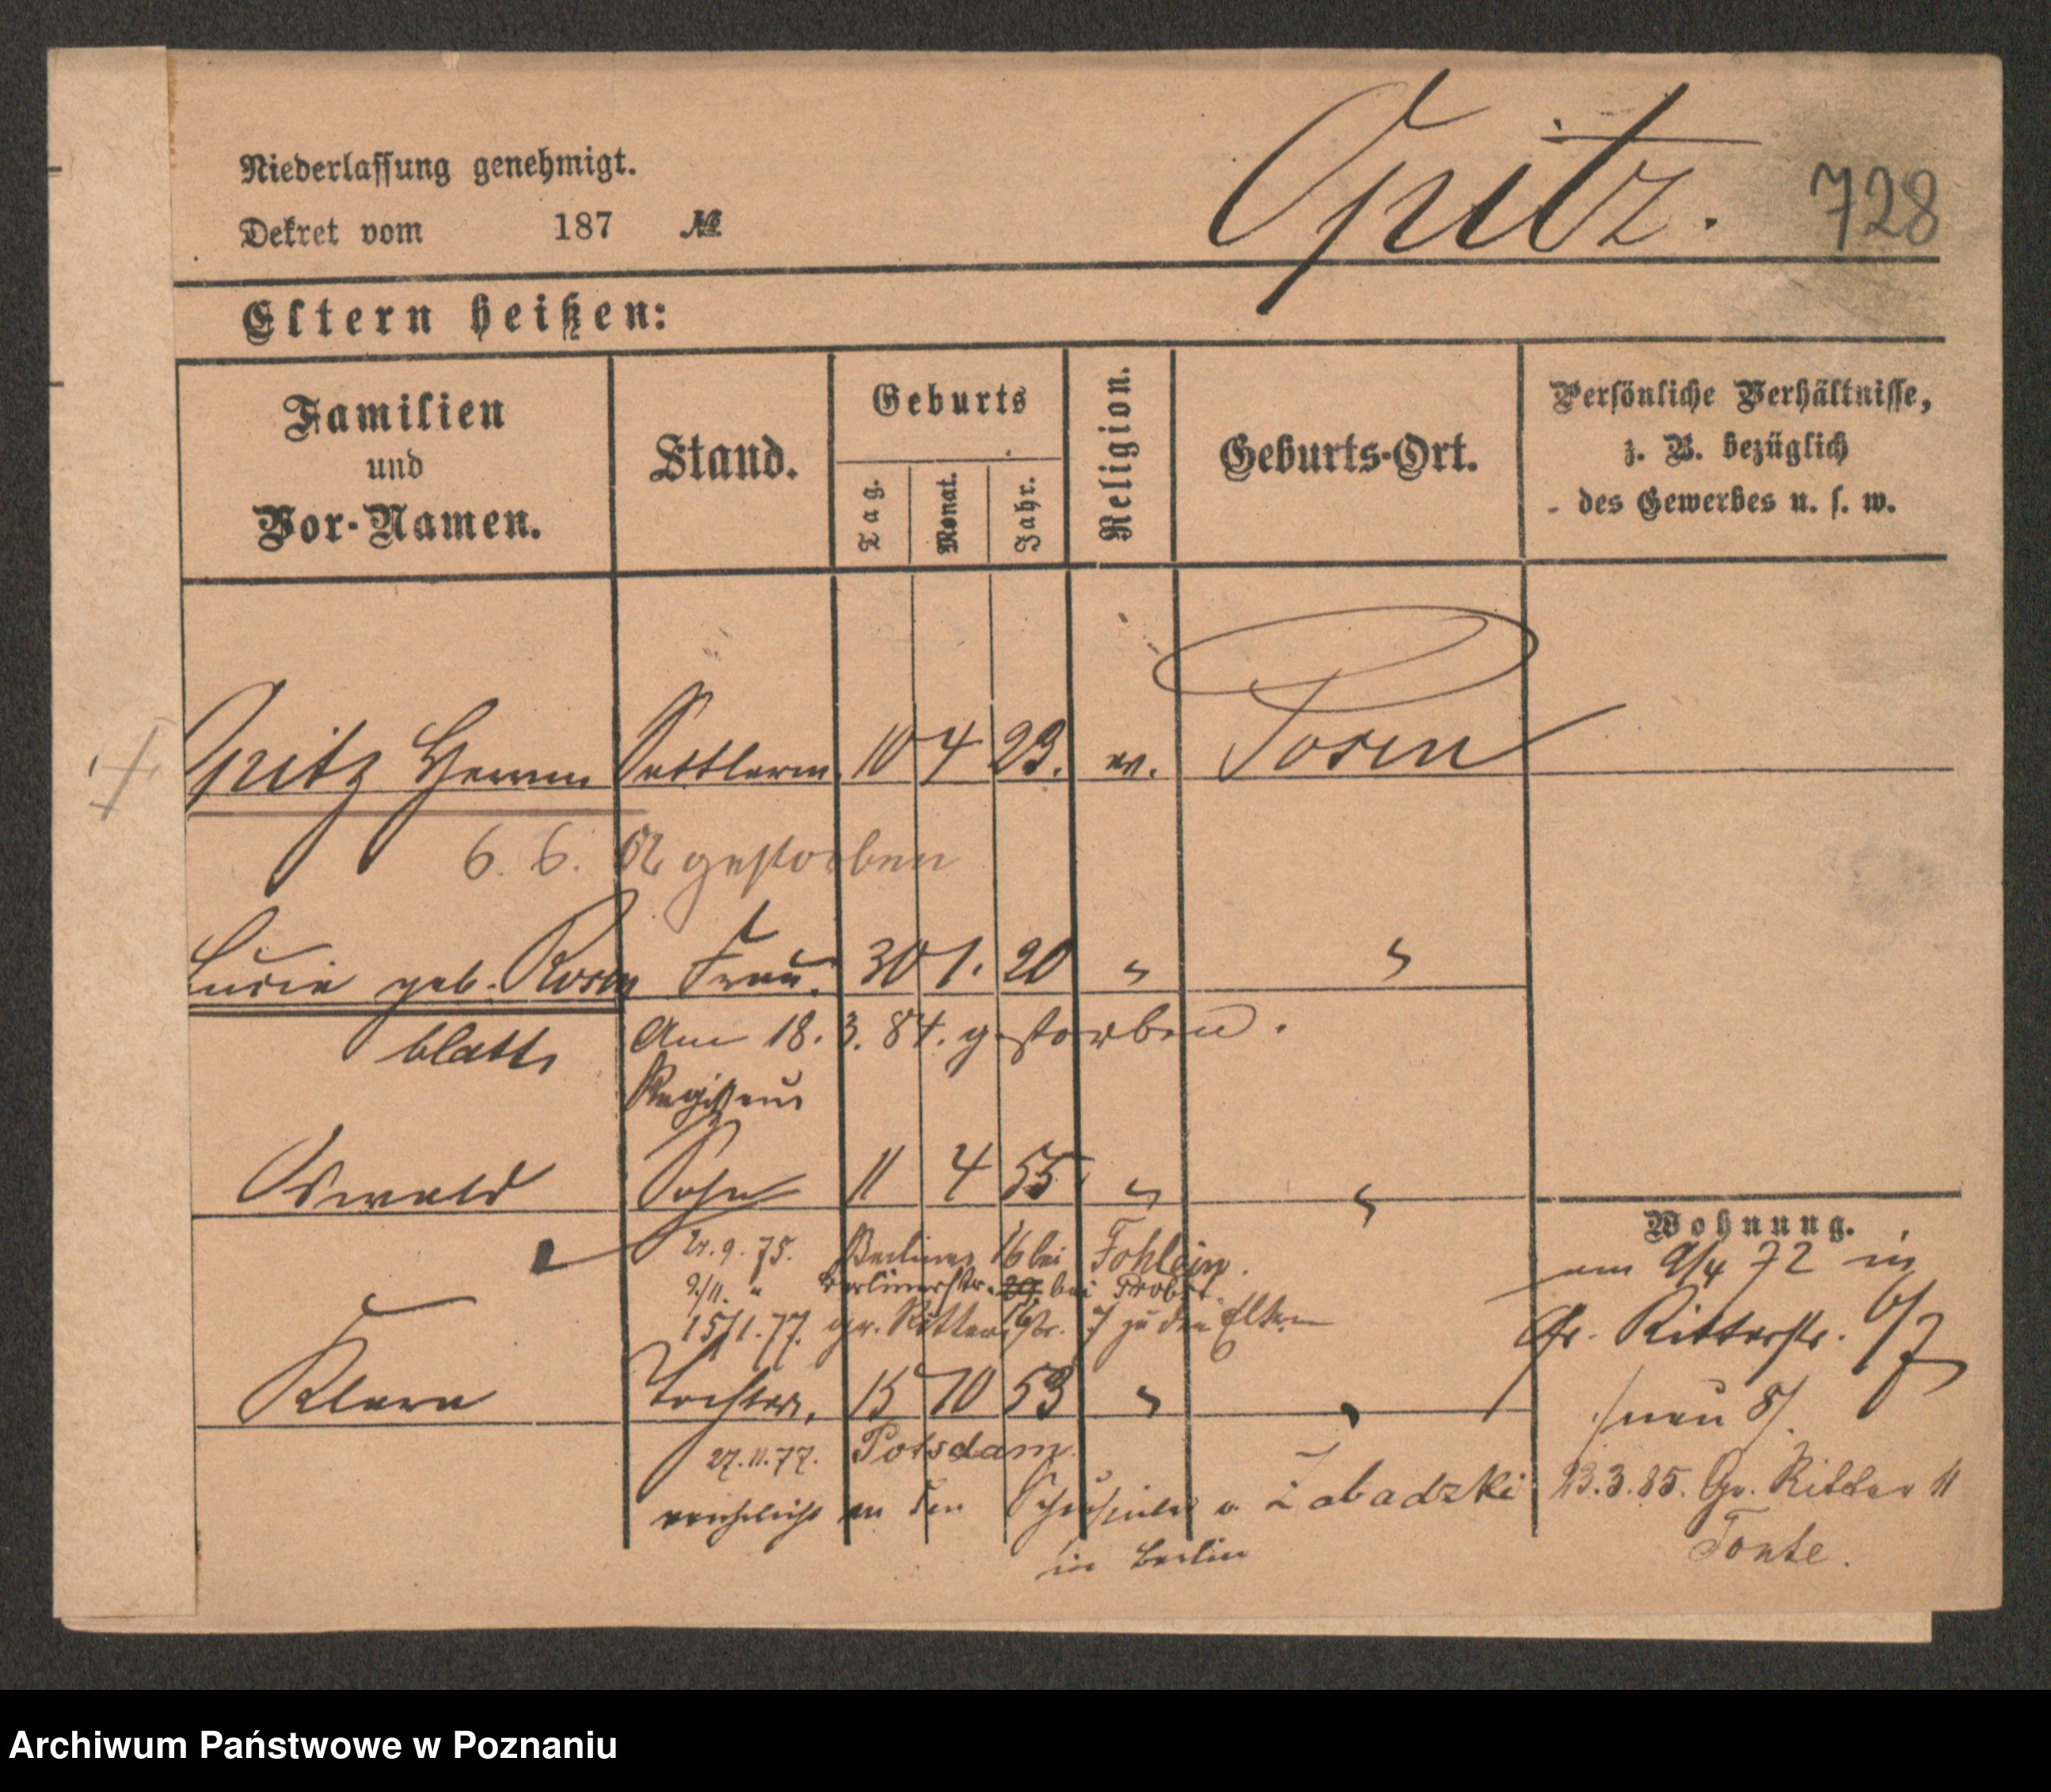 Niederlassung genehmigt.
Opitz.
728
Dekret vom 187 №
Eltern heißen:
Familien und Vor-Namen.
Stand.
Geburts
Tag.
Monat.
Jahr.
Religion.
Geburts-Ort.
Persönliche Verhältnisse,
z. B. bezüglich
des Gewerbes u. s. w.
Opitz Herrm Sattlerm. 10 4 23. ev. Posen
6. 6. gestorben
geb. Rosen Frau. 30 1. 20 " "
blatt, Am 18. 3. 84. gestorben.
Oswald Sohn 11 4 55 " "
Wohnung.
9. 75. Berliner 16 bei
9/11. " Berlinerstr. bei Probst.
15/1. 77. gr. Ritterstr. 7 zu den Eltern
am 9/4 72 in
Gr. Ritterstr. 6/7
/neu 8/.
Klara Tochter, 15 10 53 " "
27. 11. 77. Potsdam.
verehelicht an den v. Zabadzki
in Berlin
23. 3. 85. Gr. Ritter 11
Tonte.
Archiwum Państwowe w Poznaniu